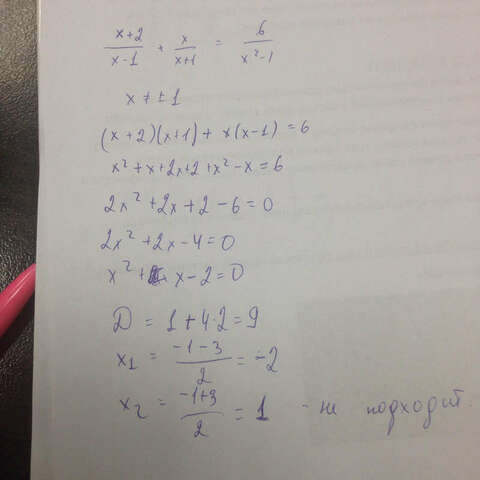 (x+2)/(x-1) + x/(x+1) = 6/(x²-1)
x ≠ ±1
(x+2)(x+1) + x(x-1) = 6
x² + x + 2x + 2 + x² - x = 6
2x² + 2x + 2 - 6 = 0
2x² + 2x - 4 = 0
x² + x - 2 = 0
D = 1 + 4·2 = 9
x₁ = (-1-3)/2 = -2
x₂ = (-1+3)/2 = 1 - не подходит.